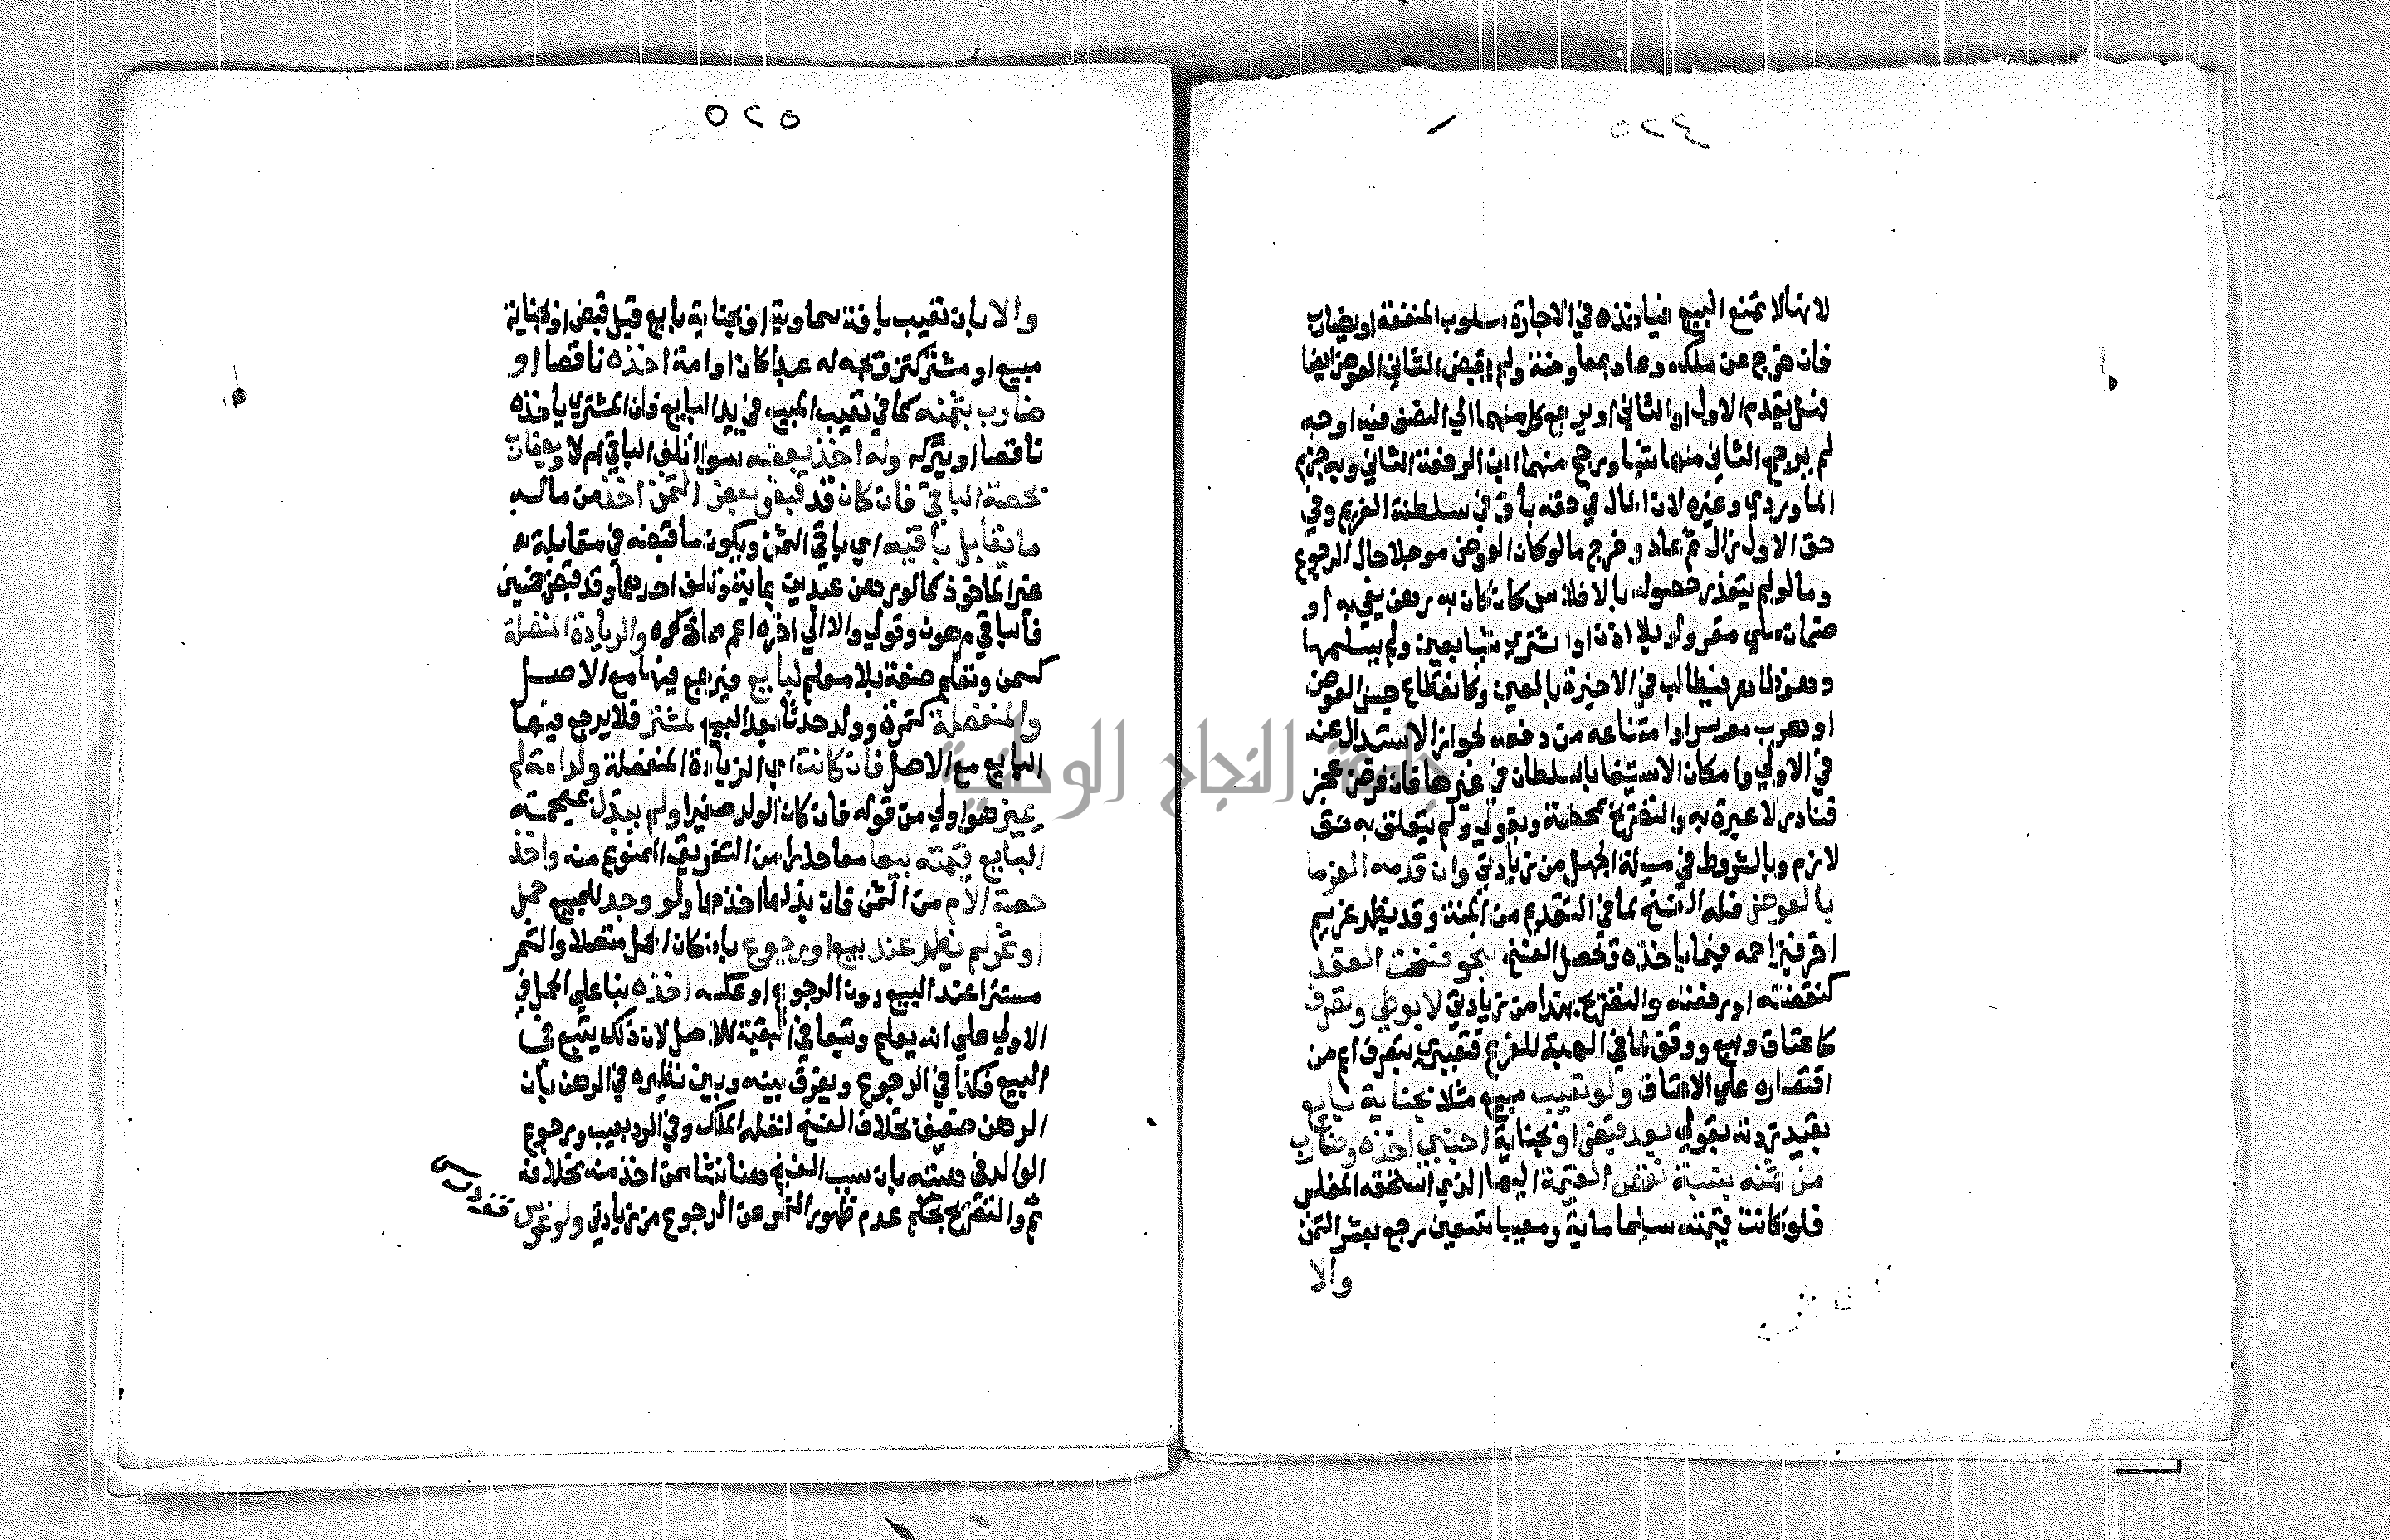 ٥٢٤
لانها لا تمنع البيع فياخذه في الاجارة مسلوب المنفعة او يضارب
فان خرج عن ملكه وعاد بمعاوضة ولم يقبض الثاني العوض ايضا
فهل يقدم الاول او الثاني او يرجع كل منهما الي النصف فيه اوجه
لم يرجح الثاني منها شيا ورجح منها ابن الرفعة الثاني وبه جزم
الماوردي وغيره لان المال في حقه باق في سلطنة الغريم وفي
حق الاول زال ثم عاد وخرج مالو كان العوض موجلا حال الرجوع
ومالو لم يتعذر حصوله بالافلاس كان كان به رهن يفي به او
ضمان ملي مقر ولو بلا اذن او اشتري شيا بعين ولم يسلمها
وهو فيطالب في الاخيرة بالعين وكانقطاع جنس العوض
او هرب موسرا او امتناعه من دفعه لجواز الاستبدال عنه
في الاولي وامكان الاستيفا بالسلطان في غيرها فان فرض عجز
فنادر لا عبرة به والتصريح وبقولي ولم يتعلق به حق
لازم وبالشروط في مسيلة الجهل من زيادتي وان قدمه الغرما
بالعوض فله الفسخ لما في التقديم من المنة وقد يظهر غريم
اخر فيزاحمه فيما ياخذه وتحصل الفسخ بنحو فسخت العقد
كنقضته او رفعته والتصريح بهذا من زيادتي لا بوطي وتصرف
كاعتاق وبيع ووقف كما في الهبة للفرع فتعبيري بتصرف اعم من
اقتصاره علي الاعتاق ولو تعيب مبيع مثلا بجناية بايع
بقيد زدته بقولي بعد قبض او بجناية اجنبي اخذه وضارب
من ثمنه بنسبة نقص القيمة اليها الذي استحقه المفلس
فلو كانت قيمته سليما ماية ومعيبا تسعين رجع بعشر الثمن
والا
٥٢٥
والا بان تعيب بافة سماوية او بجناية بايع قبل قبض او بجناية
مبيع او مشتر كتزويجه له عبدا كان او امة اخذه ناقصا او
ضارب بثمنه كما في تعيب المبيع في يد البايع فان المشتري ياخذه
ناقصا او يتركه وله اخذ بعضه سوا اتلف الباقي ام لا ويضارب
بحصة الباقي فان كان قد قبض بعض الثمن اخذ من ماله
ما يقابل باقيه اي باقي الثمن ويكون ما قبضه في مقابلة
غير الماخوذ كما لو رهن عبدين بماية وتلف احدهما وقد قبض خمسين
فالباقي مرهون وقولي والا الي اخره اعم مما ذكره والزيادة المتصلة
كسمن وتعلم صنعة بلا معلم لبايع فيرجع فيها مع الاصل
والمنفصلة كثمرة وولد حدثا بعد البيع لمشتر فلا يرجع فيها
البايع مع الاصل فان كانت اي الزيادة المنفصلة ولد امة لم
يميز هو اولي من قوله فان كان الولد صغيرا ولم يبذل
البايع قيمته بيعا معا حذرا من التفريق الممنوع منه واخذ
حصة الام من الثمن فان بذلها اخذهما ولو وجد للمبيع حمل
او ثمر لم يظهر عند بيع او رجوع بان كان الحمل متصلا والثمر
مستترا عند البيع دون الرجوع او عكسه اخذه بنا علي الحمل في
الاولي علي انه يعلم وتبعا في البقية للاصل لان ذلك يتبع في
البيع فكذا في الرجوع ويفرق بينه وبين نظيره في الرهن بان
الرهن ضعيف بخلاف الفسخ لنقله الملك وفي الرد بعيب ورجوع
الوالد في هبته بان سبب الفسخ هنا نشا ممن اخذ منه بخلافه
ثم والتصريح بحكم عدم ظهور الثمر عند الرجوع من زيادتي ولو غرس
جامعة النجاح الوطنية